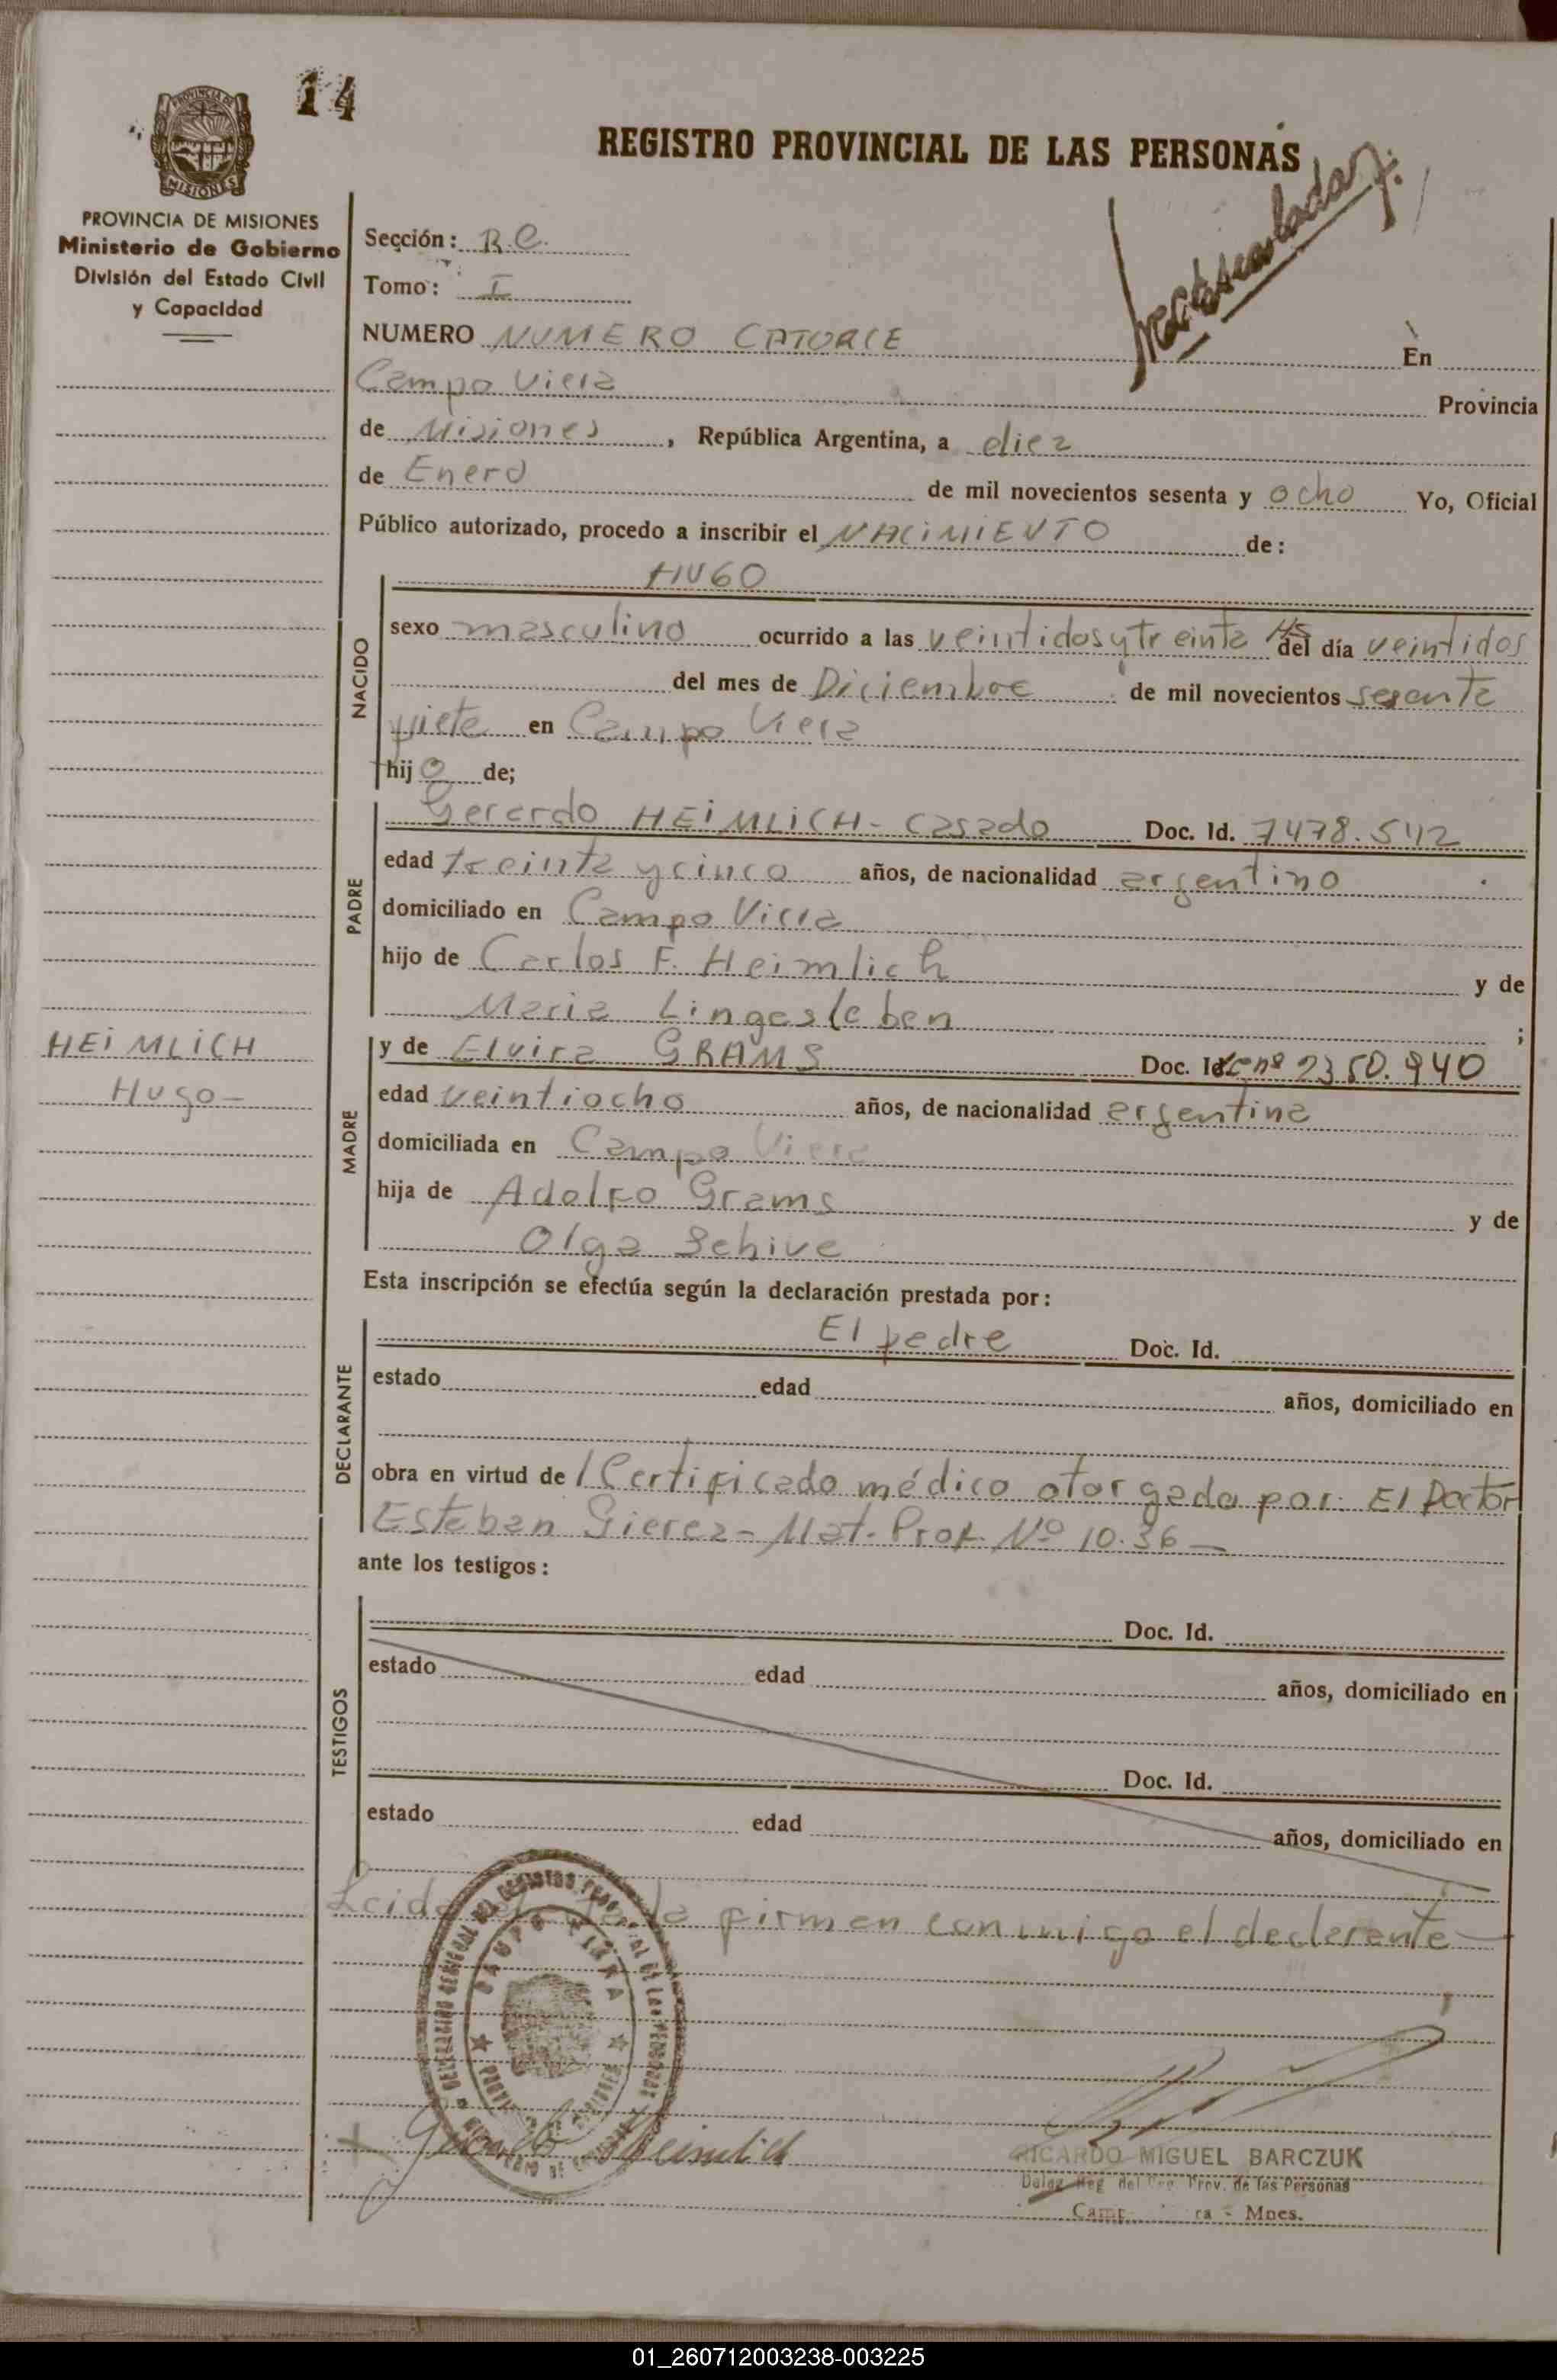 14
REGISTRO PROVINCIAL DE LAS PERSONAS
PROVINCIA DE
MISIONES
PROVINCIA DE MISIONES
Ministerio de Gobierno
División del Estado Civil
y Capacidad
Sección: R.C.
Tomo: I
NUMERO NUMERO CATORCE En
Campo Viera Provincia
de Misiones, República Argentina, a diez
de Enero de mil novecientos sesenta y ocho Yo, Oficial
Público autorizado, procedo a inscribir el NACIMIENTO de:
HUGO
NACIDO
sexo masculino ocurrido a las veintidos y treinta Hs del día veintidos
del mes de Diciembre de mil novecientos sesenta
y siete en Campo Viera
hijo de;
PADRE
Gerardo HEIMLICH - casado Doc. Id. 7478.542
edad treinta y cinco años, de nacionalidad argentino
domiciliado en Campo Viera
hijo de Carlos F. Heimlich y de
Maria Lingesleben ;
HEIMLICH
Hugo-
MADRE
y de Elvira GRAMS Doc. Id. nº 2350.940
edad veintiocho años, de nacionalidad argentina
domiciliada en Campo Viera
hija de Adolfo Grams y de
Olga Schive
Esta inscripción se efectúa según la declaración prestada por:
DECLARANTE
El padre Doc. Id.
estado edad años, domiciliado en
obra en virtud de 1 Certificado médico otorgado por El Doctor
Esteban Gierea - Mat. Prof. Nº 10.36 -
ante los testigos:
TESTIGOS
Doc. Id.
estado edad años, domiciliado en
Doc. Id.
estado edad años, domiciliado en
Leida firman conmigo el declarante
Gerardo Heimlich
RICARDO MIGUEL BARCZUK
Deleg. Reg. del Reg. Prov. de las Personas
Camp ra - Mnes.
01_260712003238-003225